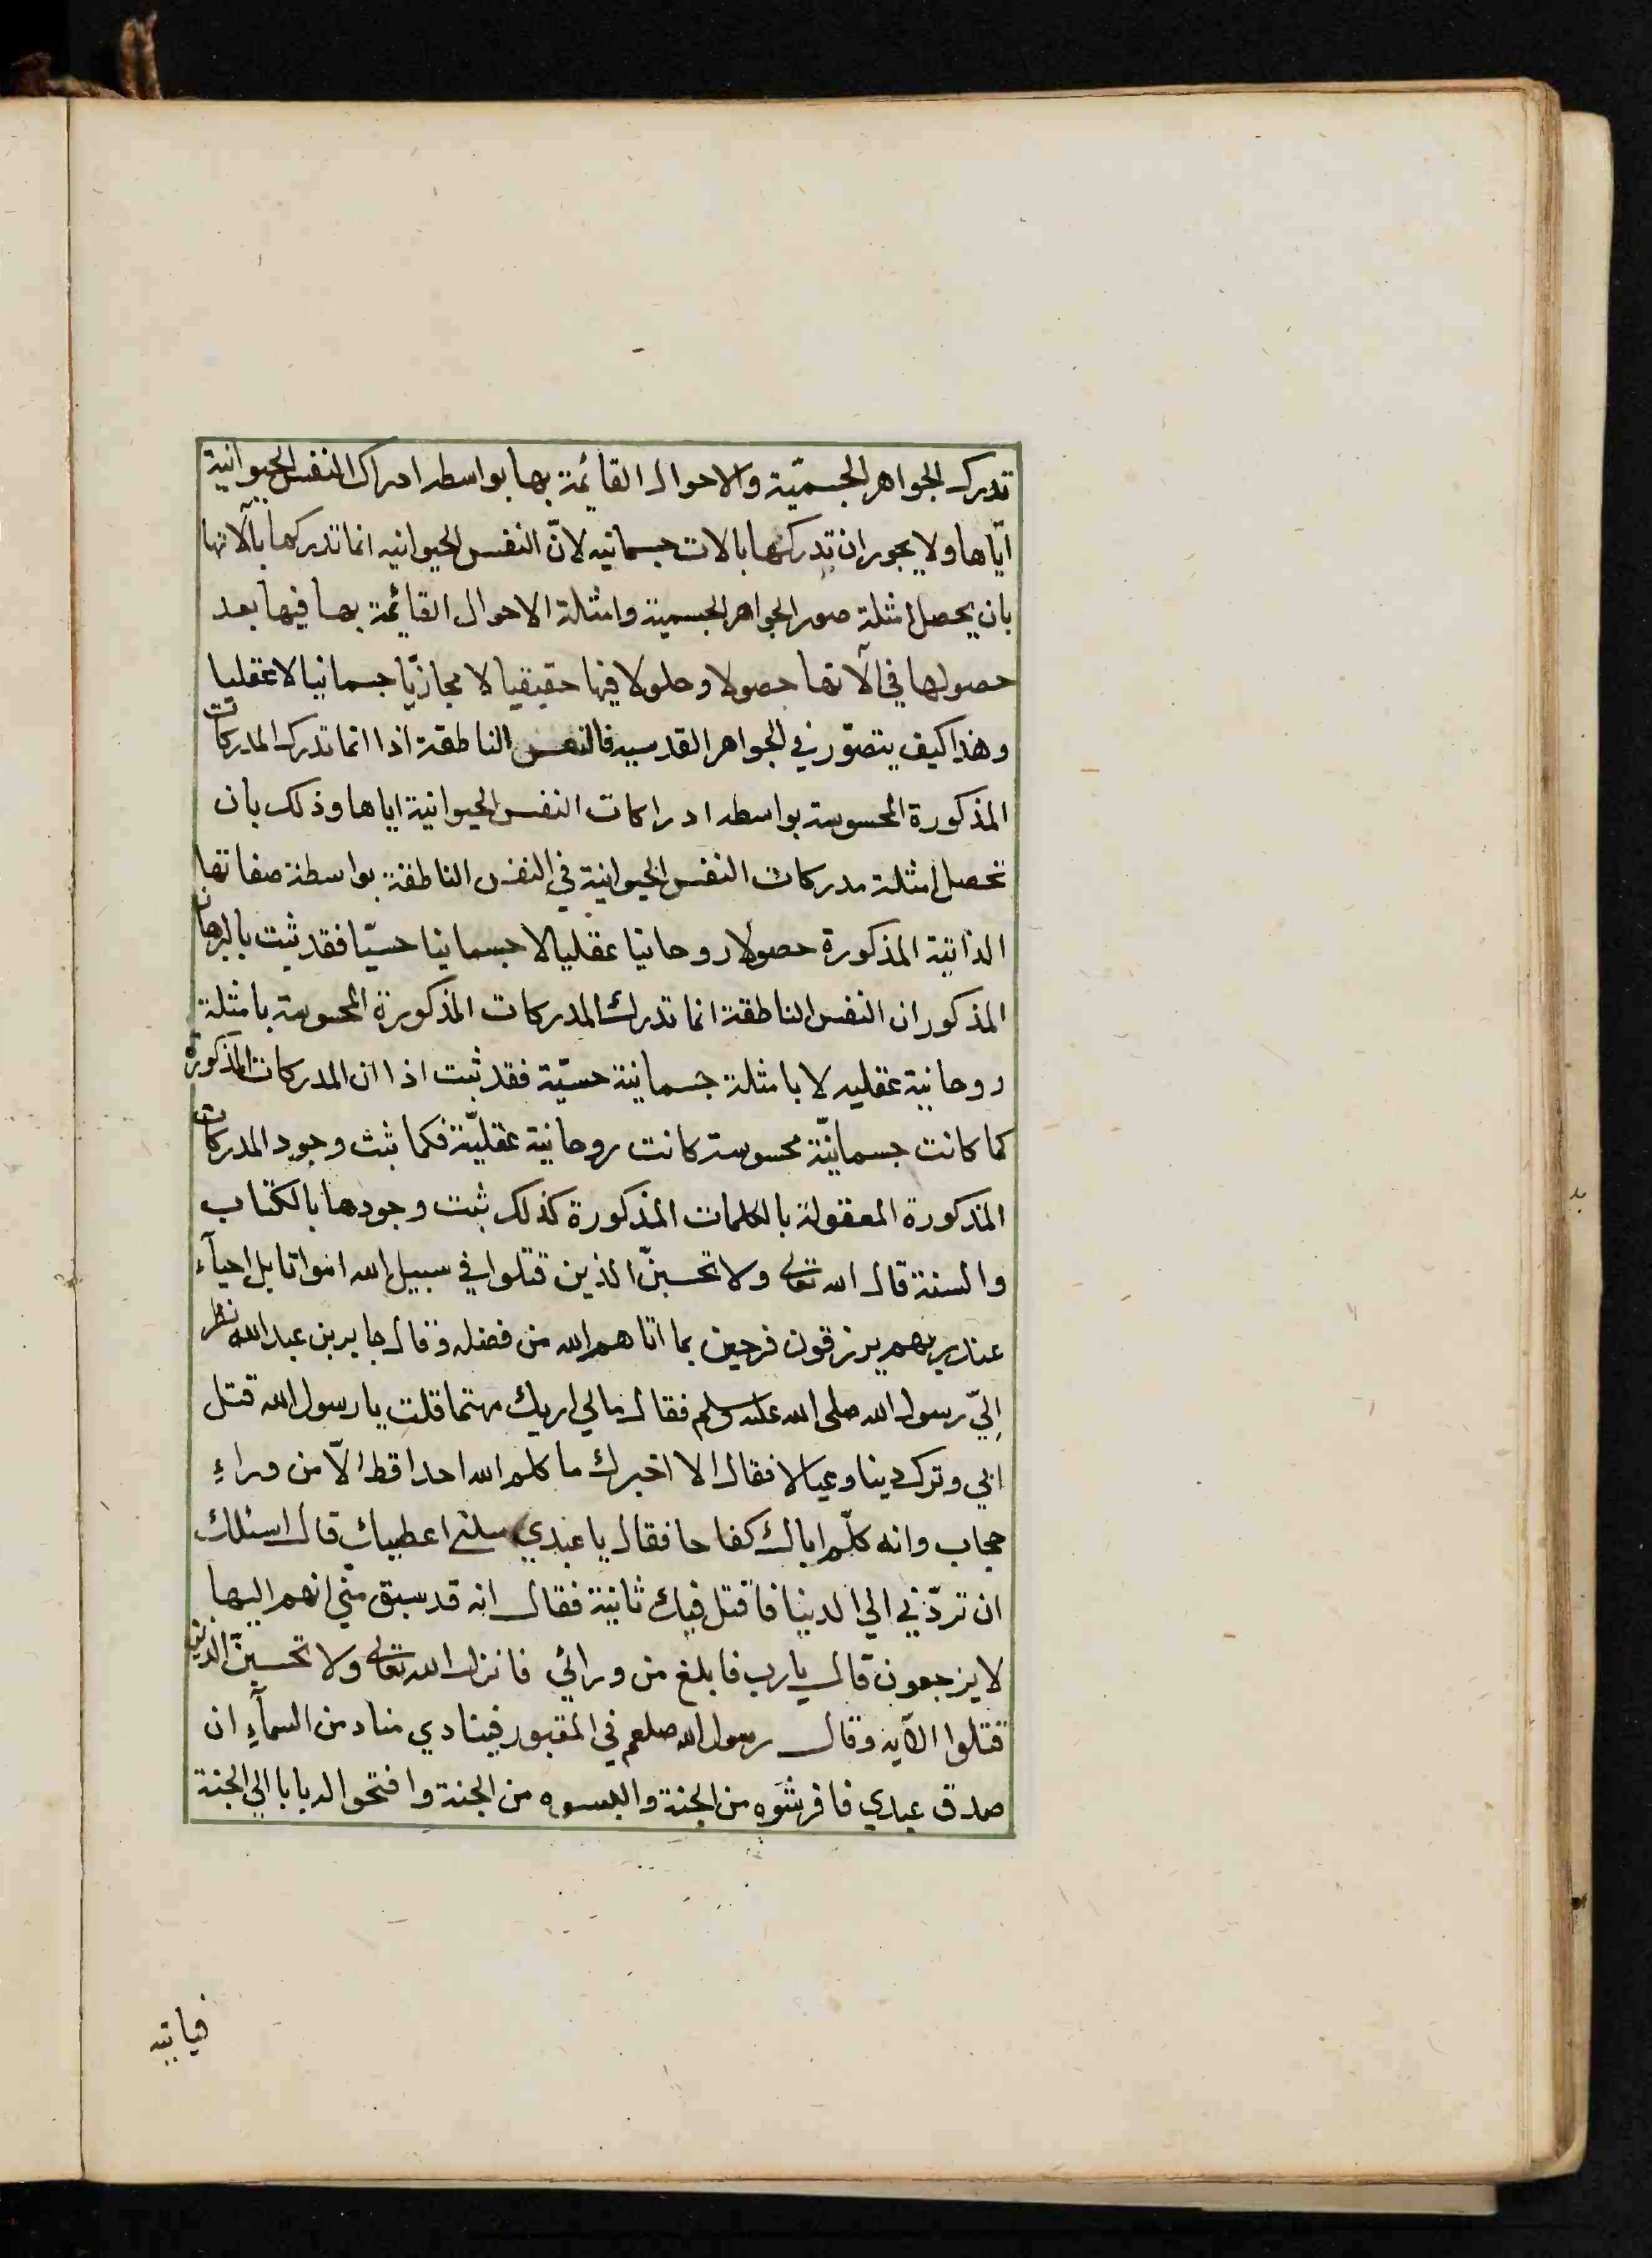 تدرك الجواهر الجسميّة والاحوال القائمة بها بواسطه ادراك النفس الحيوانية
ايّاها ولا يجوز ان تدركها بالات جسمانيه لانّ النفس الحيوانيه انما تدركها بآلاتها
بان يحصل امثلة صور الجواهر الجسمية وامثلة الاحوال القائمة بها فيها بعد
حصولها في الآتها حصولا وحلولا فيها حقيقيا لا مجازيّا جسمانيا لا عقليا
وهذا كيف يتصوّر في الجواهر القدسيه فالنفس الناطقة اذا انما تدرك المدركات
المذكورة المحسوسة بواسطه ادراكات النفس الحيوانية اياها وذلك بان
تحصل امثلة مدركات النفس الحيوانية في النفس الناطقة بواسطة صفاتها
الذاتية المذكورة حصولا روحانيا عقليا لا جسمانيا حسيّا فقد ثبت بالبرهان
المذكور ان النفس الناطقة انما تدرك المدركات المذكورة المحسوسة بامثلة
روحانية عقليه لا بامثلة جسمانية حسيّة فقد ثبت اذا ان المدركات المذكورة
كما كانت جسمانيّة محسوسة كانت روحانية عقليّة فكما ثبت وجود المدركات
المذكورة المعقولة بالكلمات المذكورة كذلك ثبت وجودها بالكتاب
والسنة قال الله تعالى ولا تحسبنّ الذين قتلوا في سبيل الله امواتا بل احيآء
عند ربهم يرزقون فرحين بما اتاهم الله من فضله وقال جابر بن عبد الله نظر
اِليّ رسول الله صلى الله عليه وسلم فقال مالي اريك مهتما قلت يا رسول الله قتل
ابي وترك دينا وعيالا فقال الا اخبرك ما كلم الله احدا قط الاّ من وراءِ
حجاب وانه كلّم اباك كفاحا فقال يا عبدي سلني اعطيك قال اسئلك
ان تردّني الي الدنيا فاقتل فيك ثانية فقال انه قد سبق منّي انهم اليها
لا يرجعون قال يا رب فابلغ من ورائي فانزل الله تعالى ولا تحسبنّ الذين
قتلوا الآيه وقال رسول الله صلعم في المقبور فينادي مناد من السمآءِ ان
صدق عبدي فافرشوه من الجنة والبسوه من الجنة وافتحوا له بابا الي الجنة
فياتيه